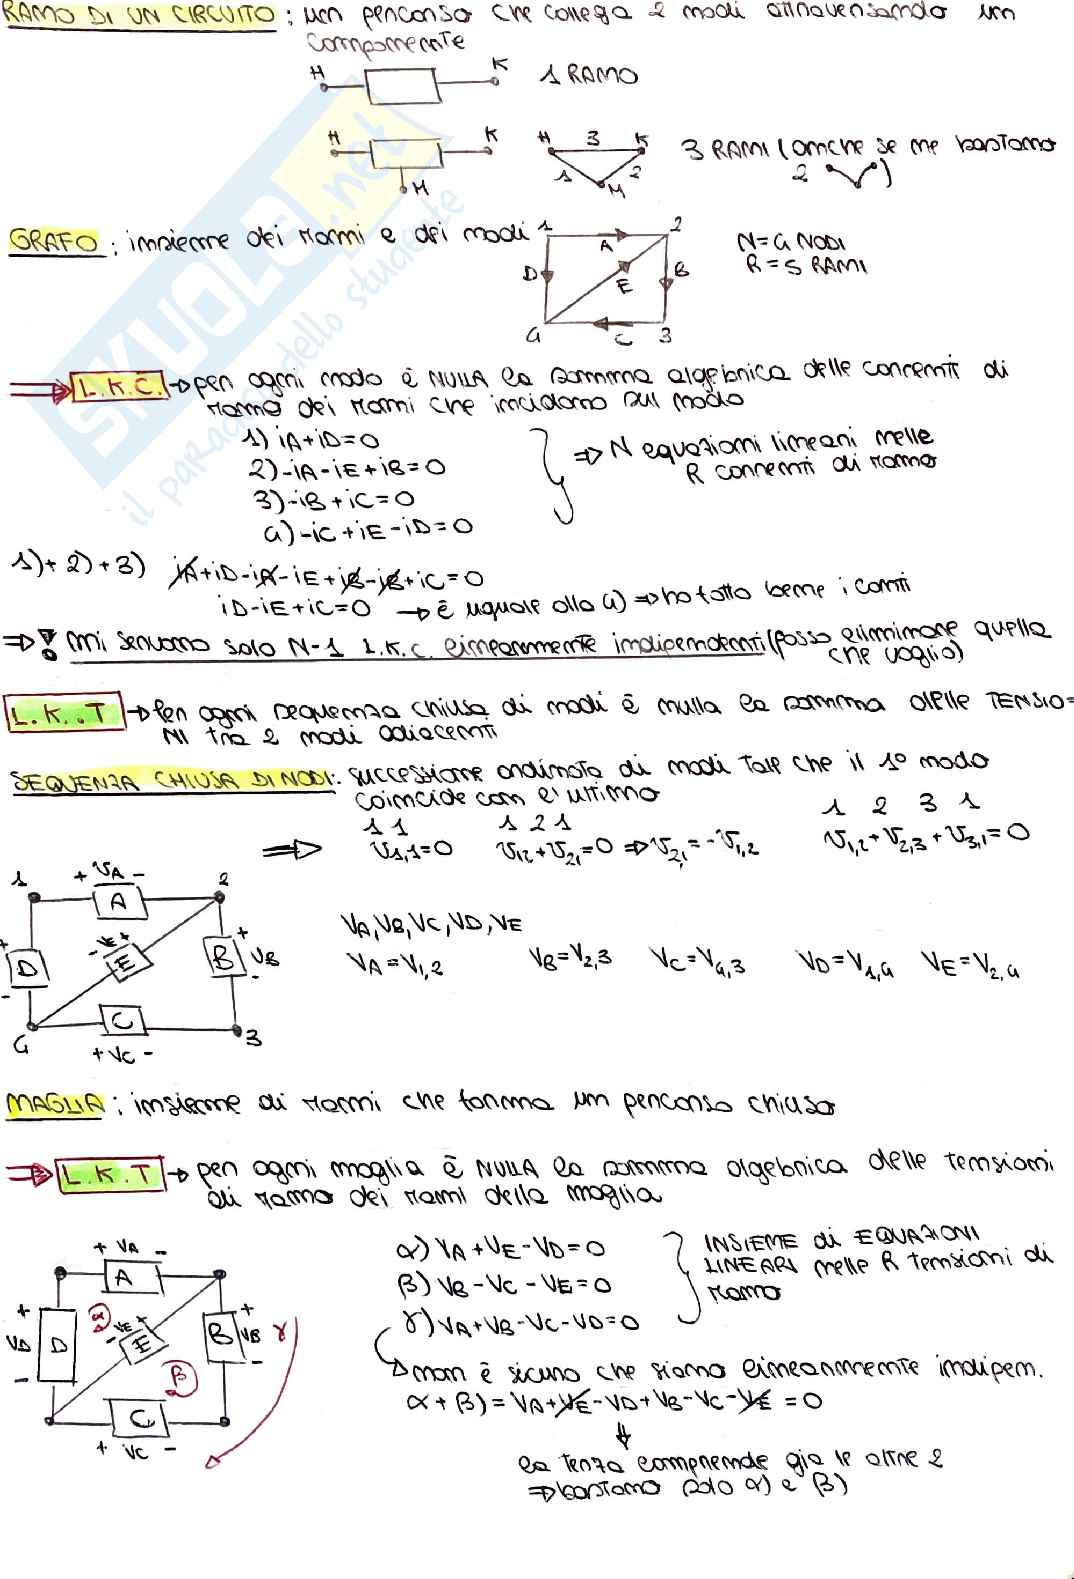 RAMO DI UN CIRCUITO : un percorso che collega 2 nodi attraversando un
componente
H K 1 RAMO
H K M
H 3 K 1 2 M
3 RAMI (anche se ne bastano
2 )
GRAFO : insieme dei rami e dei nodi
1 2 A D E B 4 C 3
N=4 NODI
R=5 RAMI
L.K.C. → per ogni nodo è NULLA la somma algebrica delle correnti di
ramo dei rami che incidono sul nodo
1) iA+iD=0
2) -iA-iE+iB=0
3) -iB+iC=0
4) -iC+iE-iD=0
⇒ N equazioni lineari nelle
R correnti di ramo
1)+2)+3) iA+iD-iA-iE+iB-iB+iC=0
iD-iE+iC=0 → è uguale alla 4) ⇒ ho fatto bene i conti
⇒ ! mi servono solo N-1 L.K.C. linearmente indipendenti (posso eliminare quella
che voglio)
L.K.T → Per ogni sequenza chiusa di nodi è nulla la somma delle TENSIO=
NI tra 2 nodi adiacenti
SEQUENZA CHIUSA DI NODI: successione ordinata di nodi tale che il 1° nodo
coincide con l'ultimo
1 1 1 2 1 1 2 3 1
⇒ V1,1=0 V12+V21=0 ⇒ V2,1=-V1,2 V1,2+V2,3+V3,1=0
1 + VA - 2
A
+ D - - VE + E + B - VB
C
4 + VC - 3
VA, VB, VC, VD, VE
VA=V1,2 VB=V2,3 VC=V4,3 VD=V1,4 VE=V2,4
MAGLIA : insieme di rami che forma un percorso chiuso
L.K.T → per ogni maglia è NULLA la somma algebrica delle tensioni
di ramo dei rami della maglia
+ VA -
A
+ VD - D α - VE + E + B VB - γ
β
C
+ VC -
α) VA+VE-VD=0
β) VB-VC-VE=0
γ) VA+VB-VC-VD=0
INSIEME di EQUAZIONI
LINEARI nelle R tensioni di
ramo
→ non è sicuro che siano linearmente indipen.
α+β) = VA+VE-VD+VB-VC-VE = 0
⇓
la terza comprende già le altre 2
⇒ bastano solo α) e β)
SKUOLA.net
il paradiso dello studente